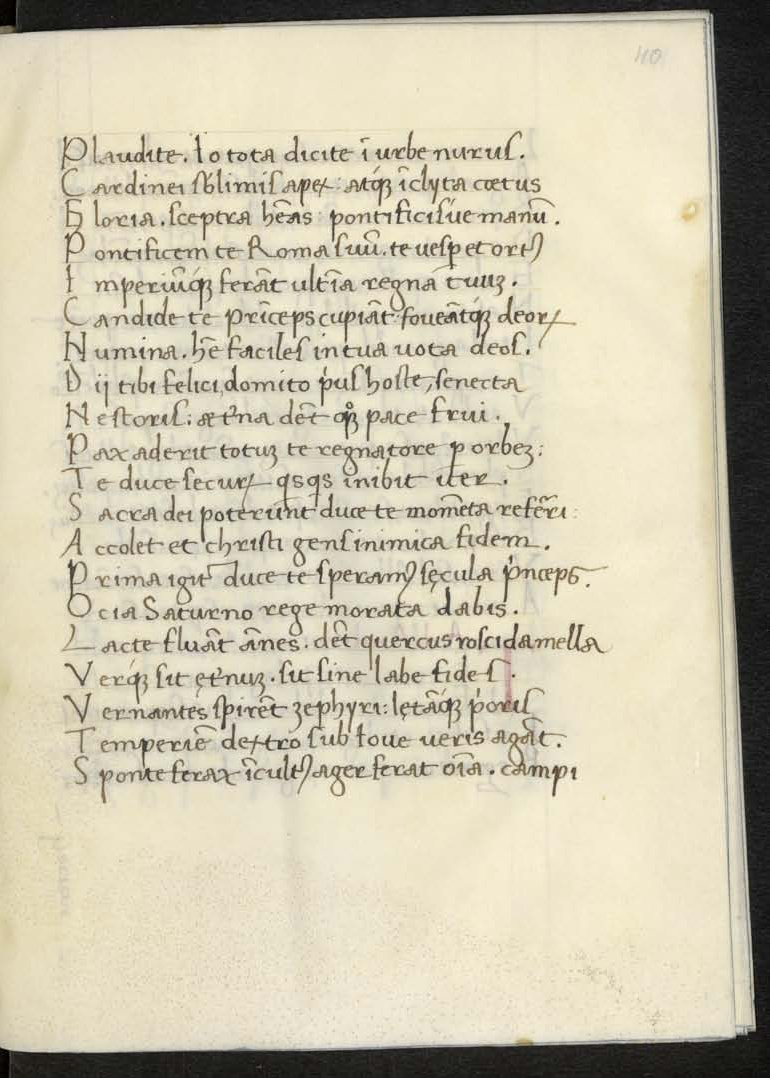 40
Plaudite. Io tota dicite ī urbe nurus.
Cardinei sb̄limis apex: atq̃ īclyta cœtus
Gloria. sceptra hēas pontificisúe manū.
Pontificem te Roma suū. te uesp et ortꝰ
Imperiūq̃ ferāt ultīa regna tuuꝫ.
Candide te prīceps cupiāt: foueātq̃ deoꝝ
Numina. hē faciles in tua uota deos.
Dij tibi felici, domito pͥus hoste, senecta
Nestoris: ætͤna dēt qꝫ pace frui.
Pax aderit totuꝫ te regnatore p orbeꝫ:
Te duce secuꝝ qsqs inibit iter.
Sacra dei poterūnt duce te momēta refērri:
Accolet et christi gens inimica fidem.
Prima igit̄ duce te speramꝰ sęcula pͥnceps.
Ocia Saturno rege morata dabis.
Lacte fluāt ānes. dēt quercus roscida mella
Verq̃ sit ętͤnuꝫ. sit sine labe fides.
Vernantes spirēt zephyri: lętāq̃ pͥoris
Temperiē dextro sub Ioue ueris agāt.
Sponte ferax īcultꝰ ager ferat oīa. campi